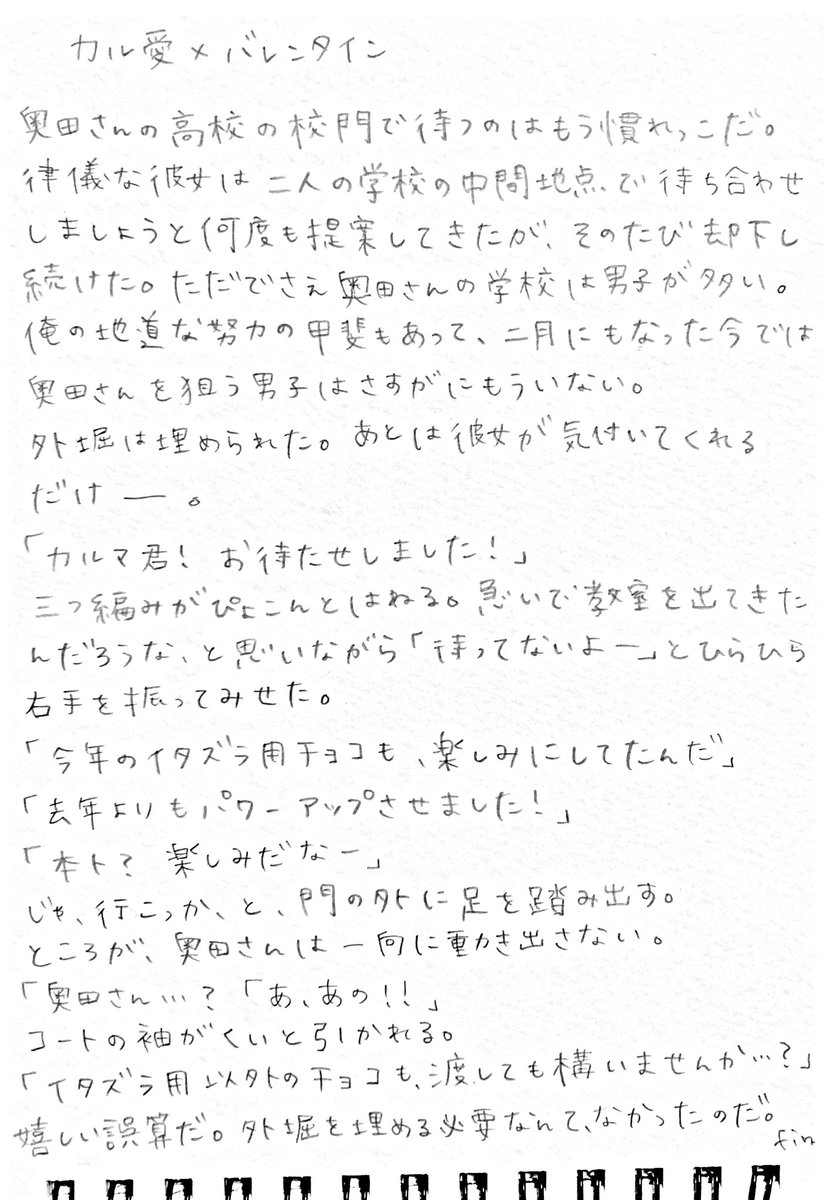 カル愛×バレンタイン
奥田さんの高校の校門で待つのはもう慣れっこだ。
律儀な彼女は二人の学校の中間地点で待ち合わせ
しましょうと何度も提案してきたが、そのたび却下し
続けた。ただでさえ奥田さんの学校は男子が多い。
俺の地道な努力の甲斐もあって、二月にもなった今では
奥田さんを狙う男子はさすがにもういない。
外堀は埋められた。あとは彼女が気付いてくれる
だけ―。
「カルマ君! お待たせしました!」
三つ編みがぴょこんとはねる。急いで教室を出てきた
んだろうな、と思いながら「待ってないよー」とひらひら
右手を振ってみせた。
「今年のイタズラ用チョコも、楽しみにしてたんだ」
「去年よりもパワーアップさせました!」
「本ト? 楽しみだなー」
じゃ、行こっか、と、門の外に足を踏み出す。
ところが、奥田さんは一向に動き出さない。
「奥田さん…?「あ、あの!!」
コートの袖がくいと引かれる。
「イタズラ用以外のチョコも、渡しても構いませんか…?」
嬉しい誤算だ。外堀を埋める必要なんて、なかったのだ。
fin